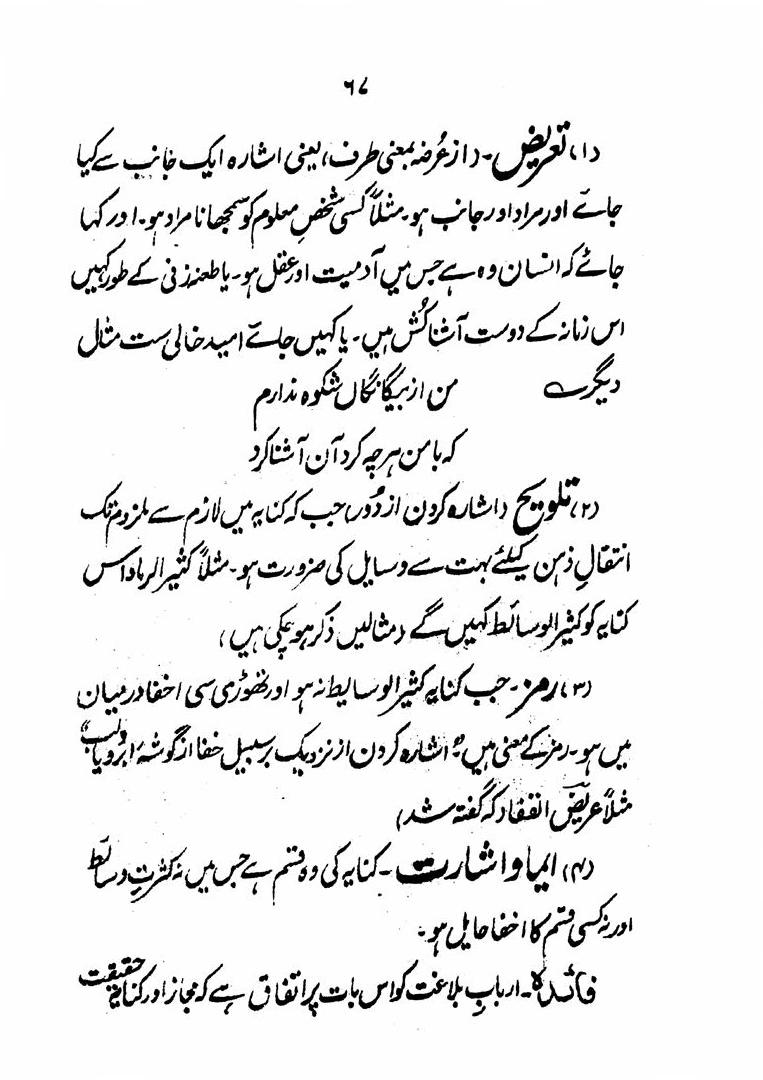 ۶۷
(۱) تعریض۔ (از عُرضہ بمعنی طرف) یعنی اشارہ ایک جانب سے کیا
جائے اور مراد اور جانب ہو۔ مثلاً کسی شخصِ معلوم کو سمجھانا مراد ہو۔ اور کہا
جائے کہ انسان وہ ہے جس میں آدمیت اور عقل ہو۔ یا طعنہ زنی کے طور کہیں
اس زمانہ کے دوست آشنا کُش ہیں۔ یا کہیں جائے امید خالی ست مثال
دیگرے من از بیگانگاں شکوہ ندارم
کہ بامن ہرچہ کرد آن آشنا کرد
(۲) تلویح (اشارہ کردن از دُور) جب کہ کنایہ میں لازم سے ملزوم تک
انتقالِ ذہن کیلئے بہت سے وسایل کی ضرورت ہو۔ مثلاً کثیر الرماد اس
کنایہ کو کثیر الوسائط کہیں گے (مثالیں ذکر ہو چکی ہیں)
(۳) رمز۔ جب کنایہ کثیر الوسایط نہ ہو اور تھوڑی سی اخفا درمیان
میں ہو۔ رمز کے معنی ہیں "اشارہ کردن از نزدیک بر سبیل خفا از گوشۂ ابرو یا لب"
مثلاً عریض القفا (کہ گفتہ شد)
(۴) ایما و اشارت۔ کنایہ کی وہ قسم ہے جس میں نہ کثرتِ وسائط
اور نہ کسی قسم کا اخفا حایل ہو۔
فائدہ۔ اربابِ بلاغت کو اس بات پر اتفاق ہے کہ مجاز اور کنایہ حقیقت